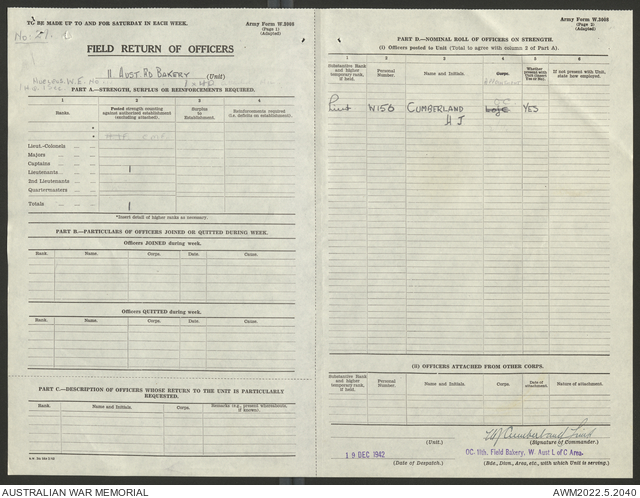 TO BE MADE UP TO AND FOR SATURDAY IN EACH WEEK.
Army Form W.3008
(Page 1)
(Adapted)
FIELD RETURN OF OFFICERS
11 AUST. FD BAKERY (Unit)
PART A.—STRENGTH, SURPLUS OR REINFORCEMENTS REQUIRED.
1 2 3 4
Ranks. Posted strength counting against authorized establishment (excluding attached). Surplus to Establishment. Reinforcements required (i.e. deficits on establishment).
*
*
Lieut.-Colonels
Majors
Captains
Lieutenants 1
2nd Lieutenants
Quartermasters
Totals 1
*Insert detail of higher ranks as necessary.
PART B.—PARTICULARS OF OFFICERS JOINED OR QUITTED DURING WEEK.
Officers JOINED during week.
Rank. Name. Corps. Date. Cause.
Officers QUITTED during week.
Rank. Name. Corps. Date. Cause.
PART C.—DESCRIPTION OF OFFICERS WHOSE RETURN TO THE UNIT IS PARTICULARLY REQUESTED.
Rank. Name and Initials. Corps. Remarks (e.g., present whereabouts, if known).
Army Form W.3008
(Page 2)
(Adapted)
PART D.—NOMINAL ROLL OF OFFICERS ON STRENGTH.
(i) Officers posted to Unit (Total to agree with column 2 of Part A).
1 2 3 4 5 6
Substantive Rank and higher temporary rank, if held. Personal Number. Name and Initials. Corps. Whether present with Unit (Answer Yes or No). If not present with Unit, state how employed.
Lieut W156 CUMBERLAND YES
H J
(ii) OFFICERS ATTACHED FROM OTHER CORPS.
Substantive Rank and higher temporary rank, if held. Personal Number. Name and Initials. Corps. Date of attachment. Nature of attachment.
(Unit.)
HJ Cumberland Lieut
(Signature of Commander.)
19 DEC 1942
OC. 11th. Field Bakery, W Aust L of C Area.
(Date of Despatch.)
(Bde., Divn., Area, etc., with which Unit is serving.)
AUSTRALIAN WAR MEMORIAL
AWM2022.5.2040